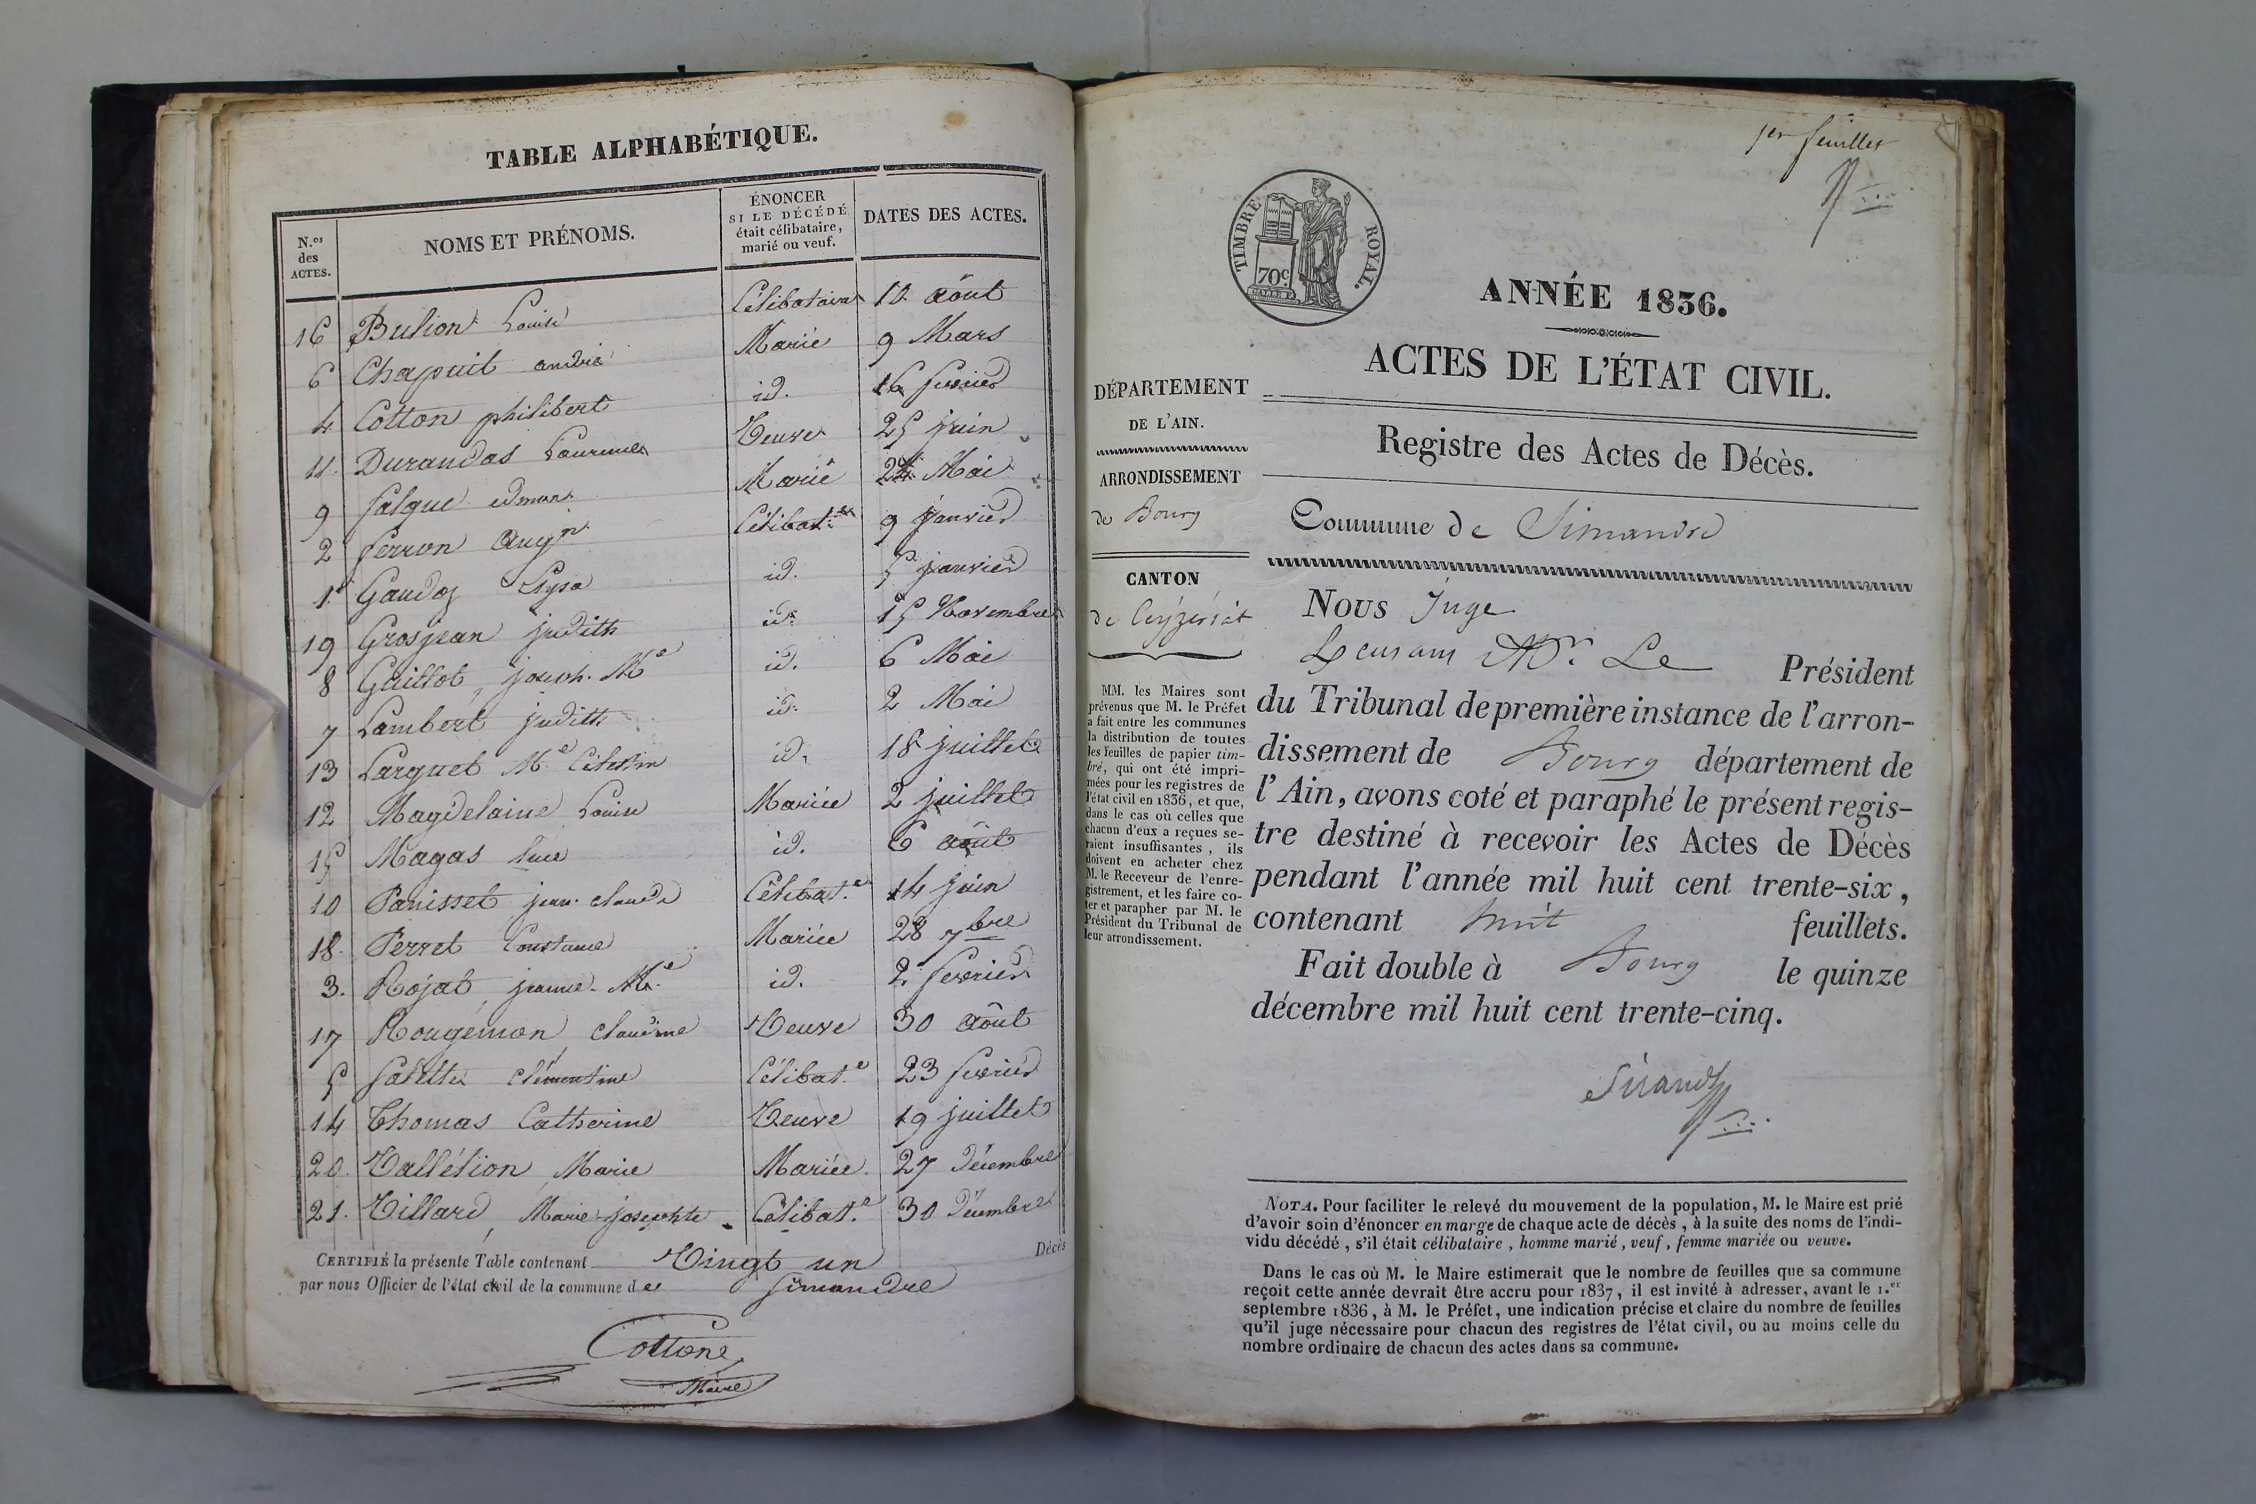 TABLE ALPHABÉTIQUE.
N.os des ACTES. NOMS ET PRÉNOMS. ÉNONCER SI LE DÉCÉDÉ était célibataire, marié ou veuf. DATES DES ACTES.
16 Bulion Louise Célibataire 10 août
6 Chapuit andré Marié 9 Mars
4 Cotton philibert id. 16 fevrier
11. Durandas Veuve 25 juin
9 falque Marié 24 Mai
2 ferron 9 janvier
1. Gaudoz id. 5 janvier
19 Grosjean judith id. 15 Novembre
8 Guillot joseph. Me id. 6 Mai
7 Lambert judith id. 2 Mai
13 Larguet Me id. 18 juillet
12 Magdelaine Louise Mariée 2 juillet
15 Magas id. 6 août
10 Panisset jean claude Célibat.e 14 juin
18. Perret Constance Mariée 28 7bre
3. Rojat jeanne. Me id. 2 fevrier
17 Rougémon claudine Veuve 30 août
5 clémentine Célibat.e 23 fevrier
14 Thomas Catherine Veuve 19 juillet
20. Vallélion Marie Mariée 27 décembre
21. Villard Marie josephte Célibat.e 30 Décembre
CERTIFIÉ la présente Table contenant Vingt un Décès
par nous Officier de l'état civil de la commune de simandre
Cottone
Maire
1er feuillet
TIMBRE ROYAL.
70c.
ANNÉE 1836.
ACTES DE L'ÉTAT CIVIL.
Registre des Actes de Décès.
Commune de Simandre
DÉPARTEMENT
DE L'AIN.
ARRONDISSEMENT
de Bourg
CANTON
de Ceyzériat
MM. les Maires sont
prévenus que M. le Préfet
a fait entre les communes
la distribution de toutes
les feuilles de papier tim-
bré, qui ont été impri-
mées pour les registres de
l'état civil en 1836, et que,
dans le cas où celles que
chacun d'eux a reçues se-
raient insuffisantes, ils
doivent en acheter chez
M. le Receveur de l'enre-
gistrement, et les faire co-
ter et parapher par M. le
Président du Tribunal de
leur arrondissement.
Nous Juge
Mr. Le Président
du Tribunal de première instance de l'arron-
dissement de Bourg département de
l'Ain, avons coté et paraphé le présent regis-
tre destiné à recevoir les Actes de Décès
pendant l'année mil huit cent trente-six,
contenant huit feuillets.
Fait double à Bourg le quinze
décembre mil huit cent trente-cinq.
NOTA. Pour faciliter le relevé du mouvement de la population, M. le Maire est prié
d'avoir soin d'énoncer en marge de chaque acte de décès, à la suite des noms de l'indi-
vidu décédé, s'il était célibataire, homme marié, veuf, femme mariée ou veuve.
Dans le cas où M. le Maire estimerait que le nombre de feuilles que sa commune
reçoit cette année devrait être accru pour 1837, il est invité à adresser, avant le 1.er
septembre 1836, à M. le Préfet, une indication précise et claire du nombre de feuilles
qu'il juge nécessaire pour chacun des registres de l'état civil, ou au moins celle du
nombre ordinaire de chacun des actes dans sa commune.